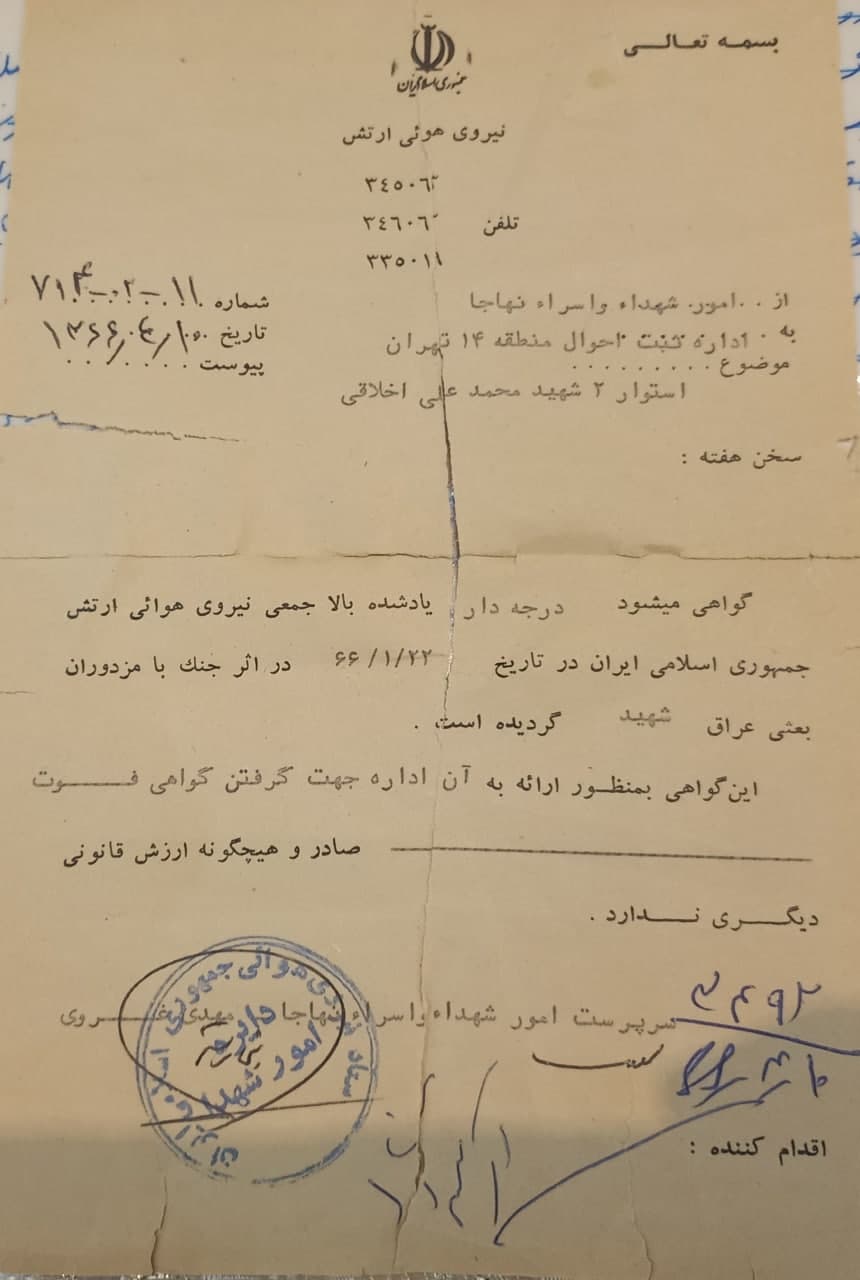 بسمه تعالی
جمهوری اسلامی ایران
نیروی هوئی ارتش
تلفن
۳٤٥۰٦۲
۳٤٦۰٦
۳۳٥۰۱۱
شماره ۷۱۴-۰۲-۱۱
تاریخ ۱۳۶۶/۰۴/۱۰
پیوست
از امور شهداء واسراء نهاجا
به اداره ثبت احوال منطقه ۱۴ تهران
موضوع
استوار ۲ شهید محمد علی اخلاقی
سخن هفته :
گواهی میشود درجه دار یادشده بالا جمعی نیروی هوائی ارتش
جمهوری اسلامی ایران در تاریخ ۶۶/۱/۲۲ در اثر جنك با مزدوران
بعثی عراق شهید گردیده است .
این گواهی بمنظور ارائه به آن اداره جهت گرفتن گواهی فوت
صادر و هیچگونه ارزش قانونی
دیگری ندارد .
سرپرست امور شهداء واسراء نهاجا مهدی غروی
ستاد نیروی هوائی جمهوری اسلامی ایران
دایره
امور شهدا
اقدام کننده :